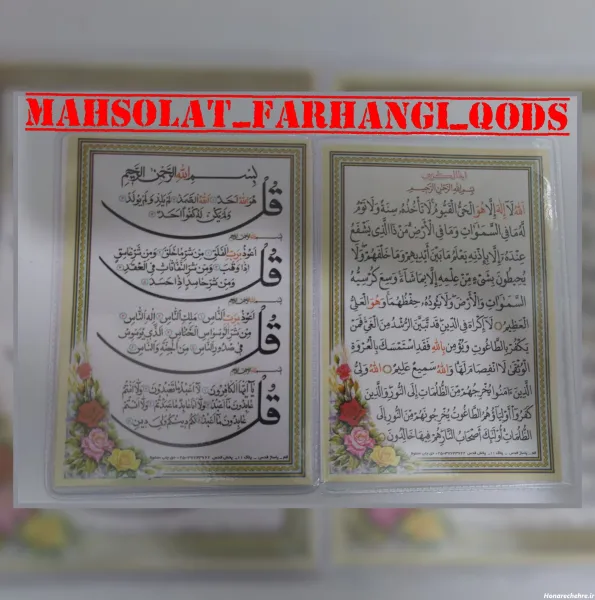 MAHSOLAT_FARHANGI_QODS
بِسْمِ اللهِ الرَّحْمٰنِ الرَّحِيمِ
قُلْ هُوَ اللهُ اَحَدٌ اَللهُ الصَّمَدُ لَمْ يَلِدْ وَلَمْ يُولَدْ
وَلَمْ يَكُنْ لَهُ كُفُوًا اَحَدٌ
قُلْ اَعُوذُ بِرَبِّ الْفَلَقِ مِنْ شَرِّ مَا خَلَقَ وَمِنْ شَرِّ غَاسِقٍ
اِذَا وَقَبَ وَمِنْ شَرِّ النَّفَّاثَاتِ فِي الْعُقَدِ
وَمِنْ شَرِّ حَاسِدٍ اِذَا حَسَدَ
قُلْ اَعُوذُ بِرَبِّ النَّاسِ مَلِكِ النَّاسِ اِلٰهِ النَّاسِ
مِنْ شَرِّ الْوَسْوَاسِ الْخَنَّاسِ الَّذِي يُوَسْوِسُ
فِي صُدُورِ النَّاسِ مِنَ الْجِنَّةِ وَالنَّاسِ
قُلْ يَا اَيُّهَا الْكَافِرُونَ لَا اَعْبُدُ مَا تَعْبُدُونَ وَلَا اَنْتُمْ
عَابِدُونَ مَا اَعْبُدُ وَلَا اَنَا عَابِدٌ مَا عَبَدْتُمْ وَلَا اَنْتُمْ
عَابِدُونَ مَا اَعْبُدُ لَكُمْ دِينُكُمْ وَلِيَ دِينِ
آية الكرسي
بسم الله الرحمن الرحيم
اَللهُ لَا اِلٰهَ اِلَّا هُوَ الْحَيُّ الْقَيُّومُ لَا تَأْخُذُهُ سِنَةٌ وَلَا نَوْمٌ
لَهُ مَا فِي السَّمٰوَاتِ وَمَا فِي الْاَرْضِ مَنْ ذَا الَّذِي يَشْفَعُ
عِنْدَهُ اِلَّا بِاِذْنِهِ يَعْلَمُ مَا بَيْنَ اَيْدِيهِمْ وَمَا خَلْفَهُمْ وَلَا
يُحِيطُونَ بِشَيْءٍ مِنْ عِلْمِهِ اِلَّا بِمَا شَاءَ وَسِعَ كُرْسِيُّهُ
السَّمٰوَاتِ وَالْاَرْضَ وَلَا يَؤُدُهُ حِفْظُهُمَا وَهُوَ الْعَلِيُّ
الْعَظِيمُ لَا اِكْرَاهَ فِي الدِّينِ قَدْ تَبَيَّنَ الرُّشْدُ مِنَ الْغَيِّ فَمَنْ
يَكْفُرْ بِالطَّاغُوتِ وَيُؤْمِنْ بِاللهِ فَقَدِ اسْتَمْسَكَ بِالْعُرْوَةِ
الْوُثْقٰى لَا انْفِصَامَ لَهَا وَاللهُ سَمِيعٌ عَلِيمٌ اَللهُ وَلِيُّ
الَّذِينَ اٰمَنُوا يُخْرِجُهُمْ مِنَ الظُّلُمَاتِ اِلَى النُّورِ وَالَّذِينَ
كَفَرُوا اَوْلِيَاؤُهُمُ الطَّاغُوتُ يُخْرِجُونَهُمْ مِنَ النُّورِ اِلَى
الظُّلُمَاتِ اُولٰئِكَ اَصْحَابُ النَّارِ هُمْ فِيهَا خَالِدُونَ
Honarechehre.ir